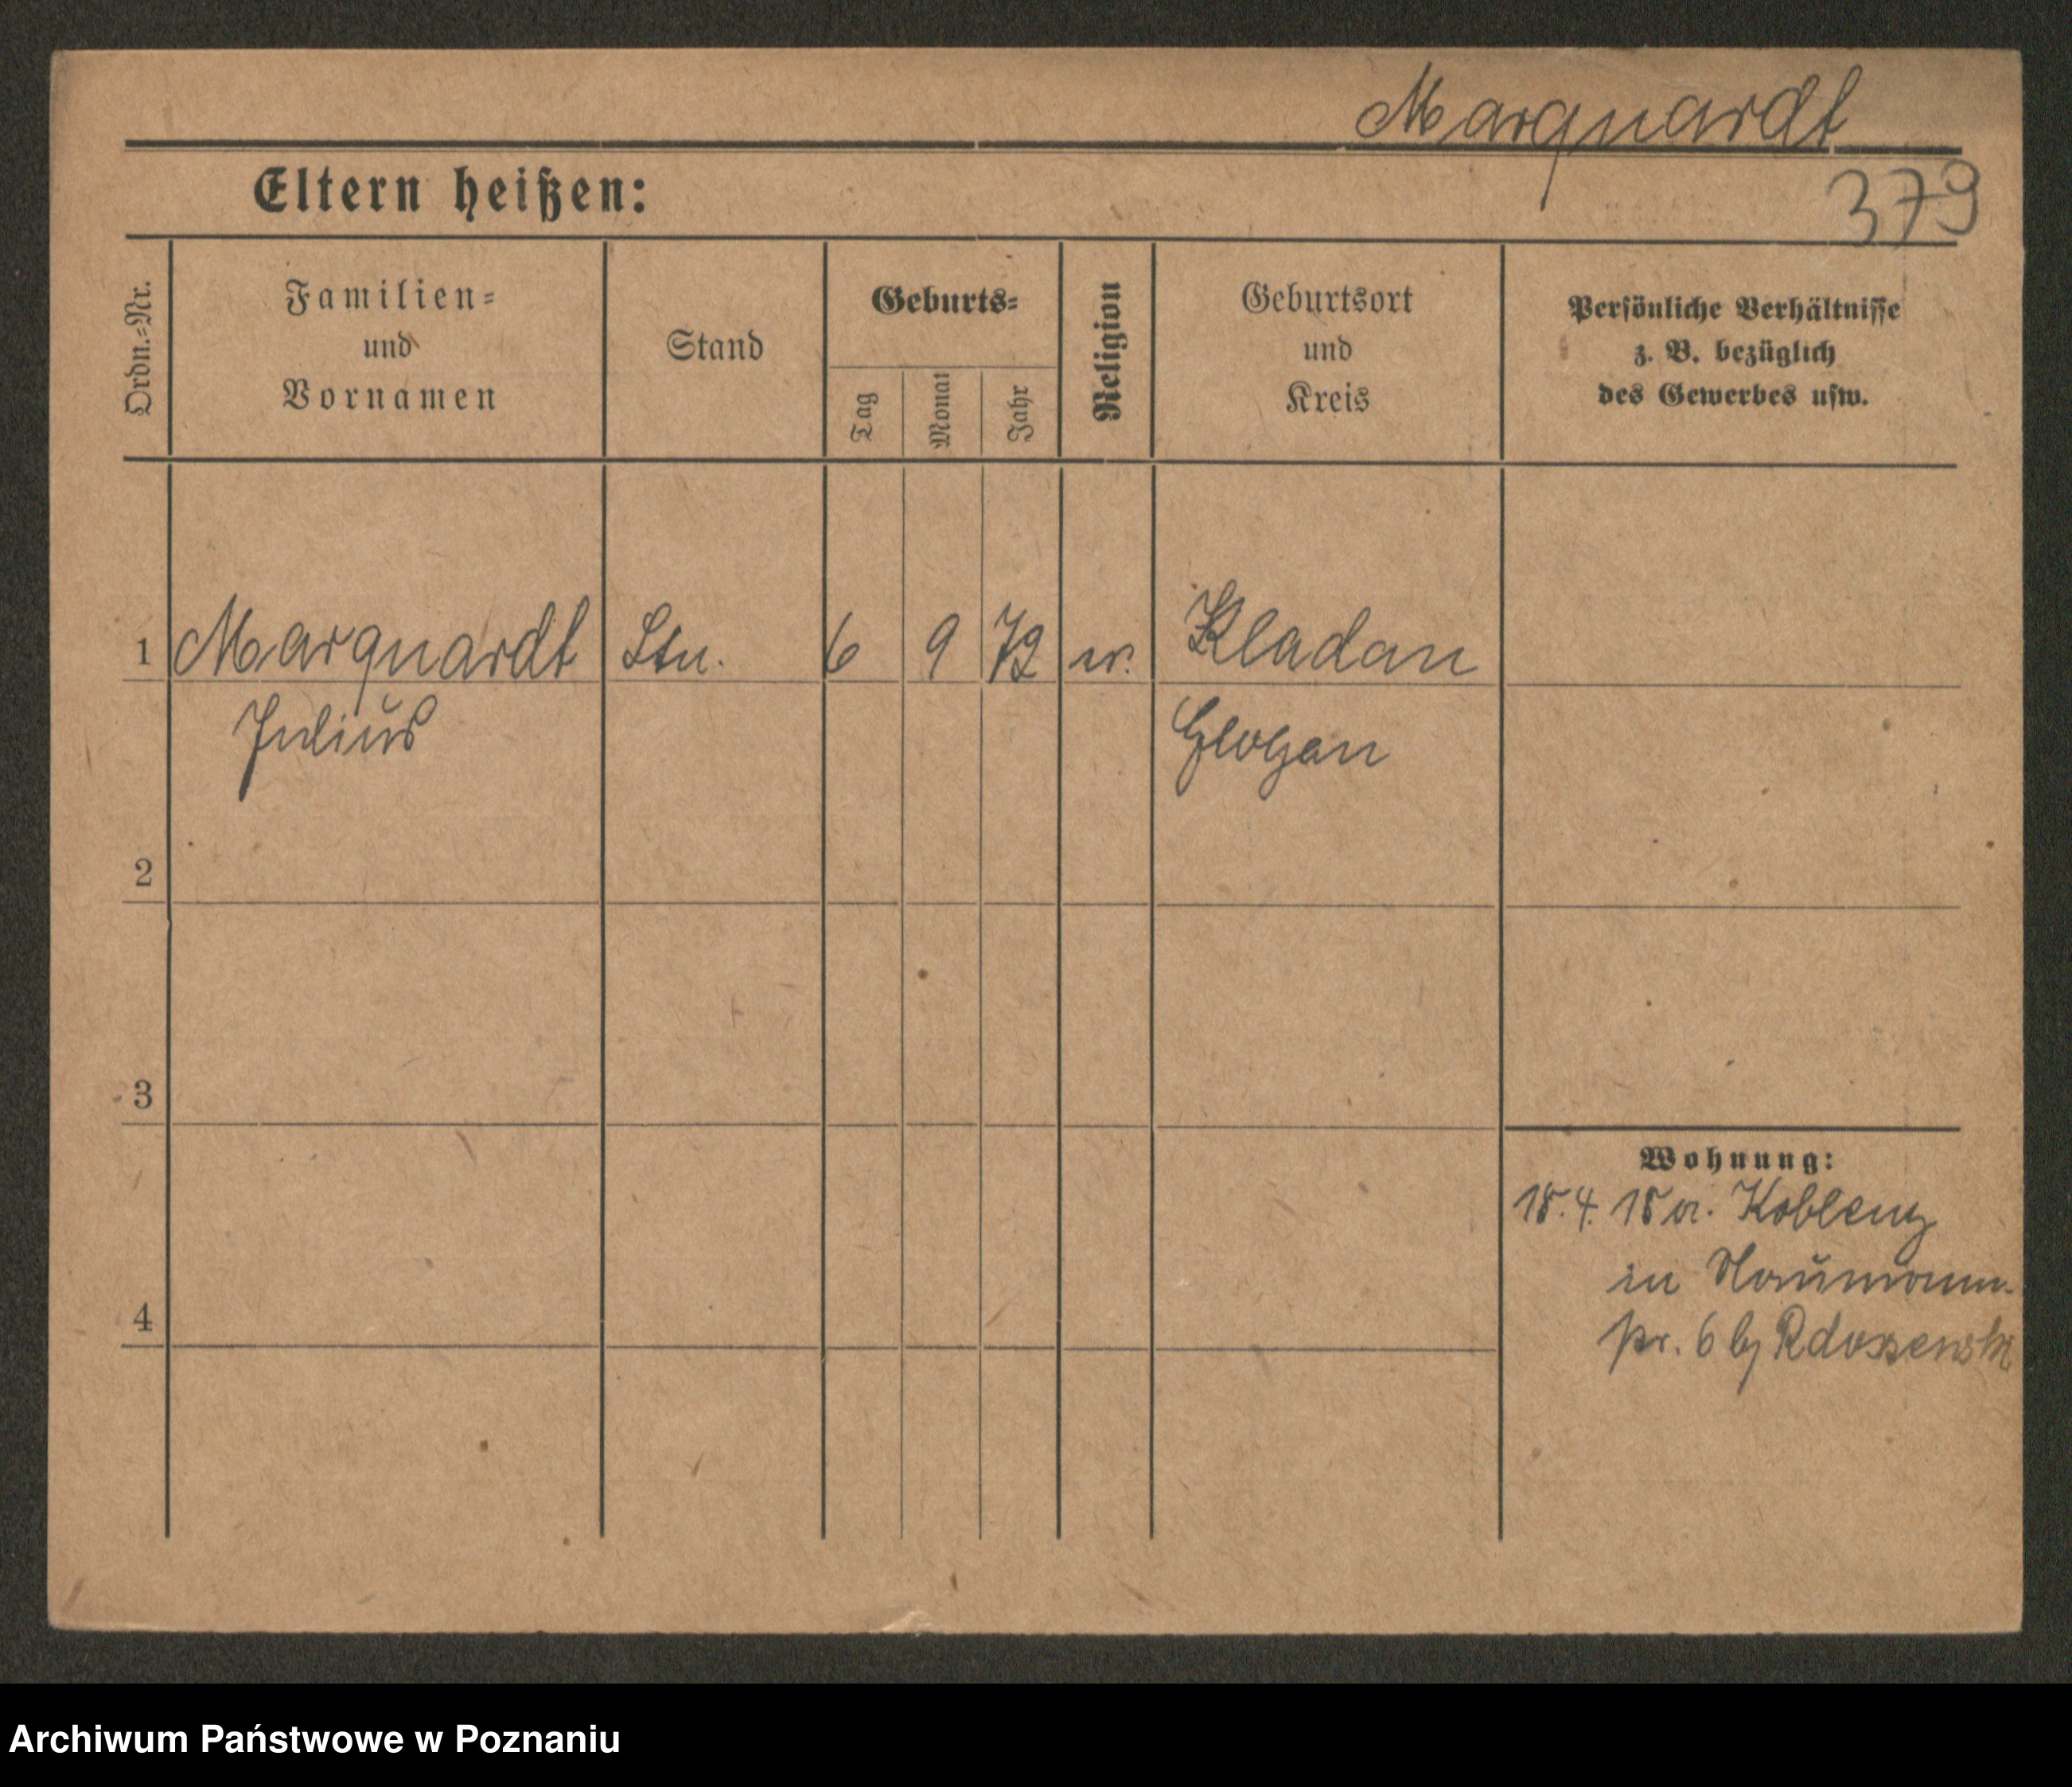 Marquardt
379
Eltern heißen:
Ordn.=Nr.
Familien=
und
Vornamen
Stand
Geburts=
Tag
Monat
Jahr
Religion
Geburtsort
und
Kreis
Persönliche Verhältnisse
z. B. bezüglich
des Gewerbes usw.
1 Marquardt 6 9 72 Kladau
Julius Glogau
2
3
Wohnung:
18. 4. 18 Koblenz
in Naumann-
4
6 b/
Archiwum Państwowe w Poznaniu